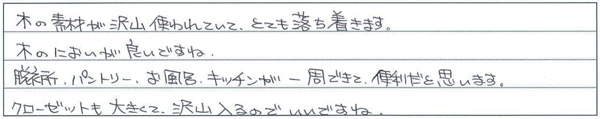 木の素材が沢山使われていて、とても落ち着きます。
木のにおいが良いですね。
脱衣所、パントリー、お風呂、キッチンが一周できて、便利だと思います。
クローゼットも大きくて、沢山入るのでいいですね。